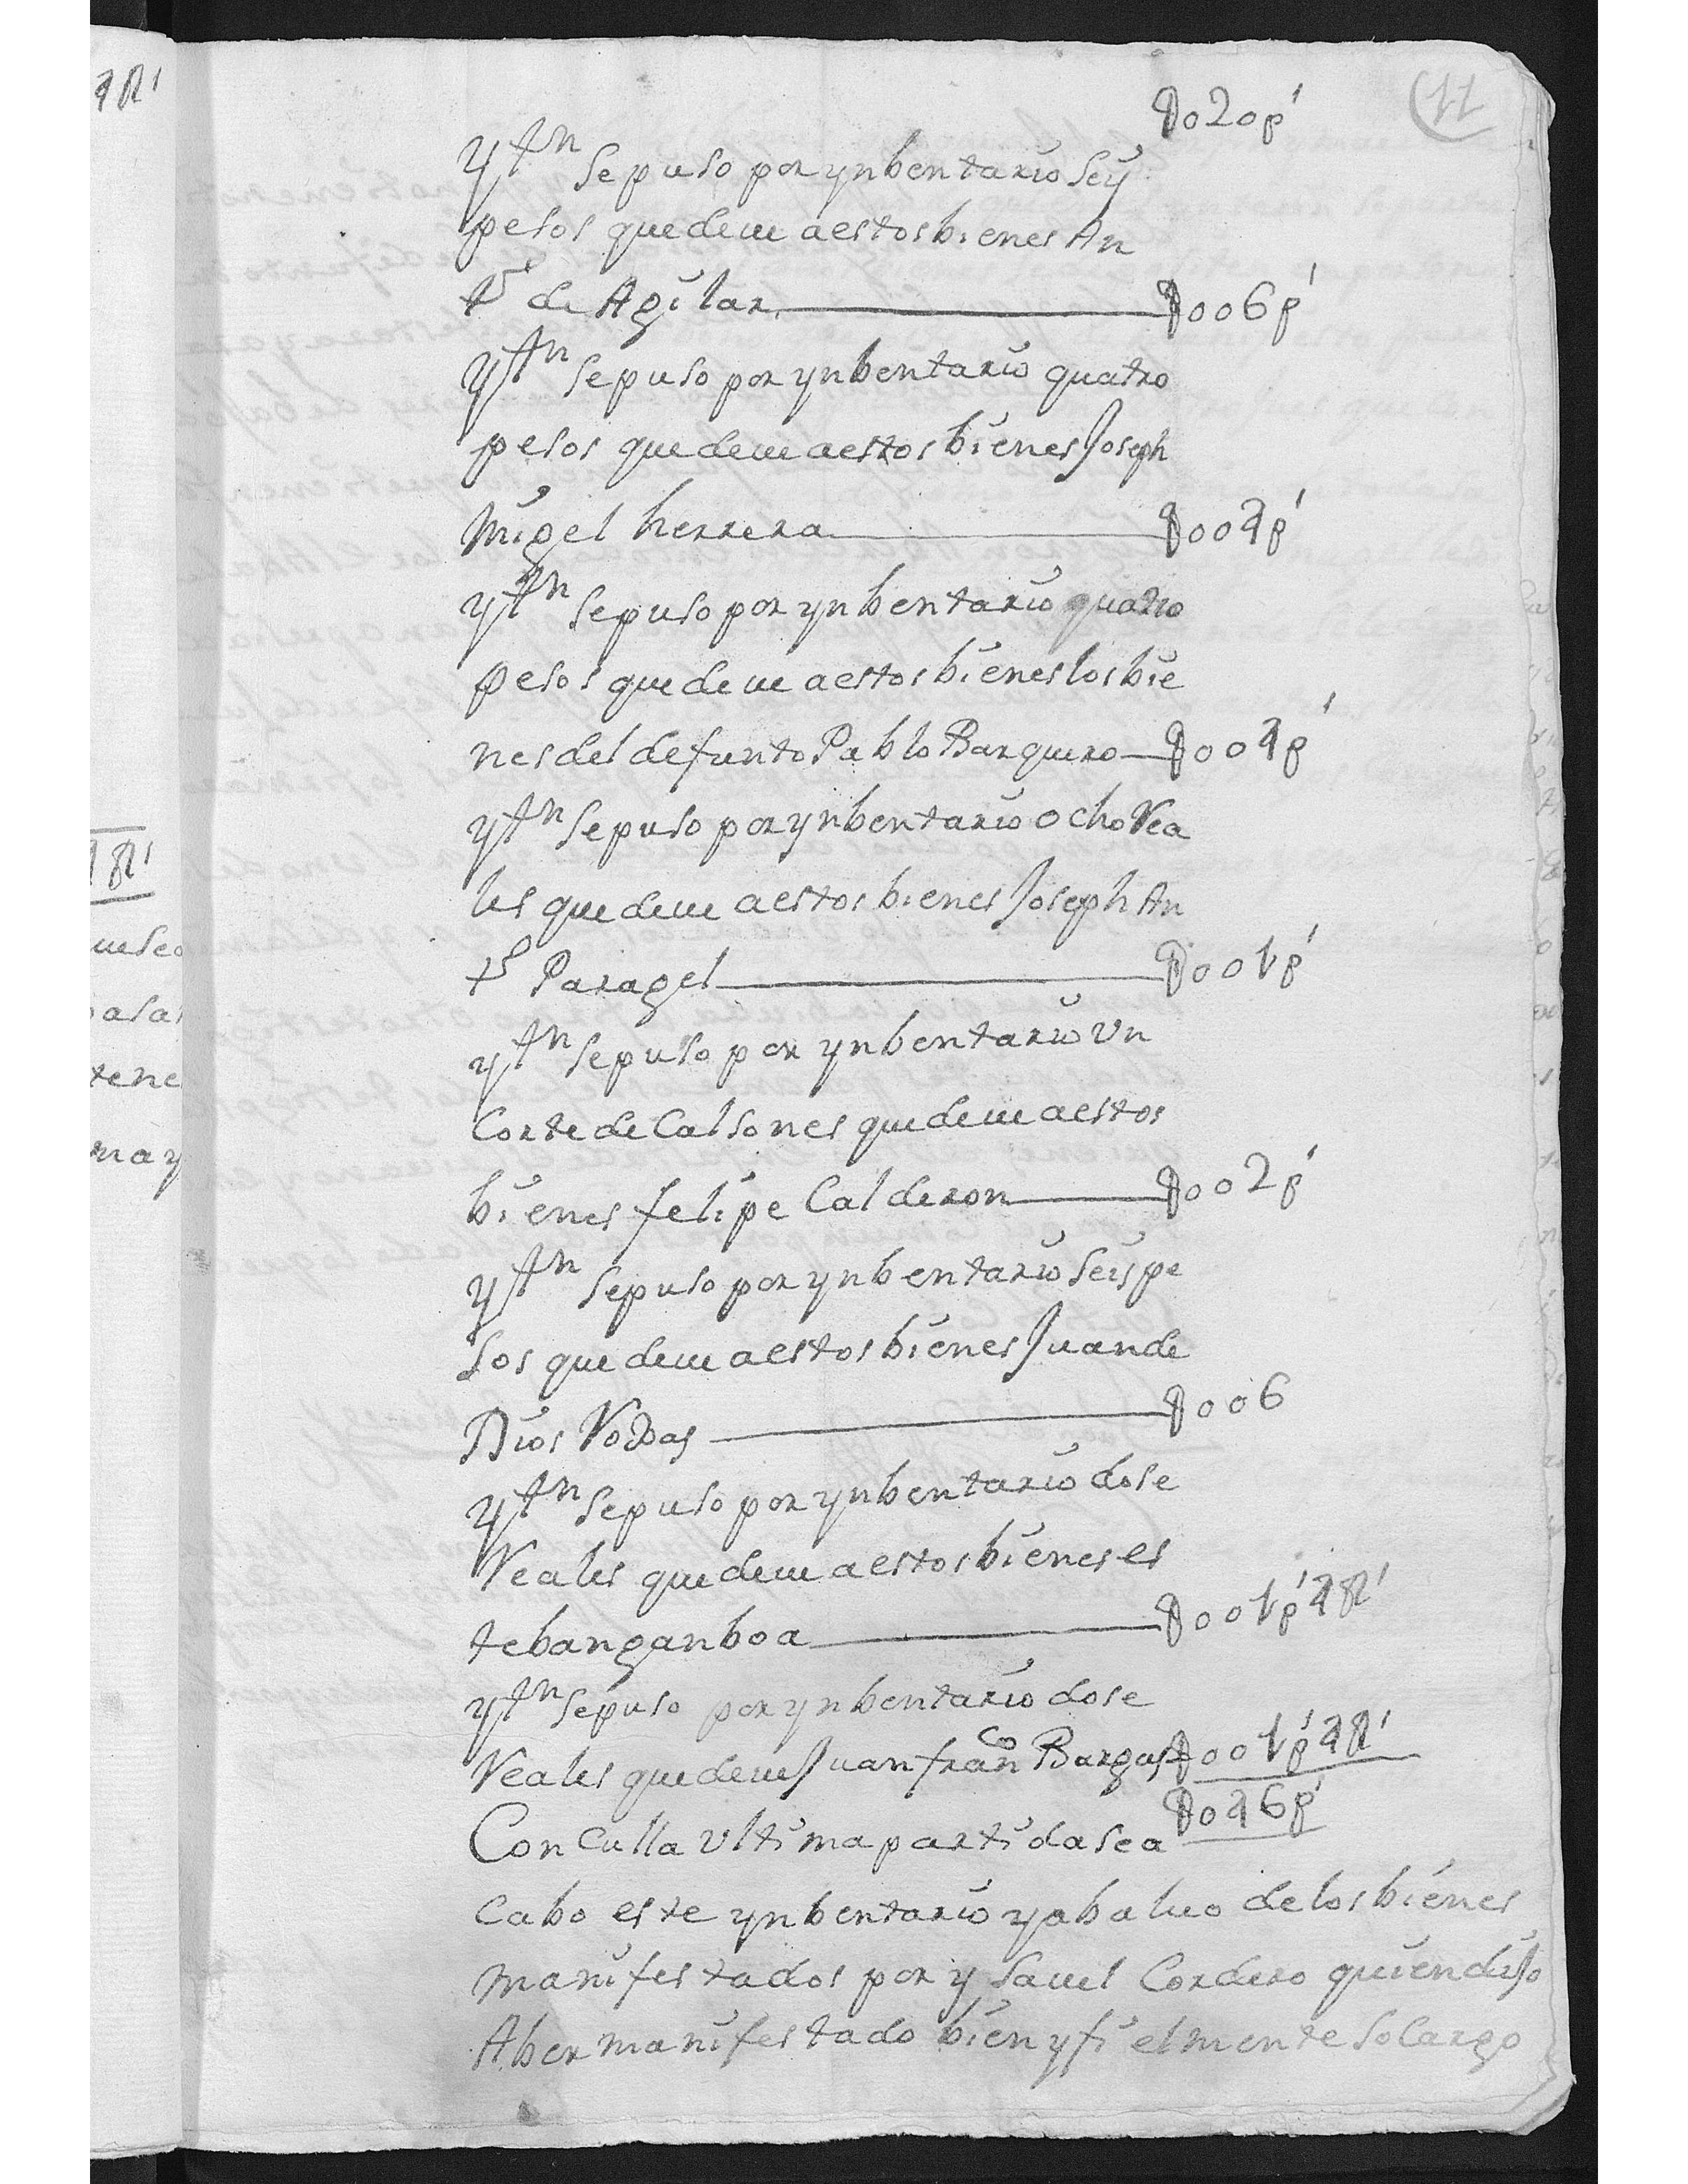 11
$020ps
Ytn se puso por ynbentario seys
pesos que deve a estos bienes An
to de Agilar $006ps
Ytn se puso por ynbentario quatro
pesos que deve a estos bienes Joseph
Migel herrera $004ps
ytn se puso por ynbentario quatro
pesos que deve a estos bienes los bie
nes del defunto Pablo Barquero $004ps
ytn se puso por ynbentario ocho Rea
les que deve a estos bienes Joseph An
to Paragel $001ps
ytn se puso por ynbentario Un
Corte de Calsones que deve a estos
bienes felipe Calderon $002ps
ytn se puso por ynbentario seis pe
sos que deve a estos bienes Juan de
Dios Rodas $006
ytn se puso por ynbentario dose
Reales que deve a estos bienes es
teban ganboa $001ps4Rs
ytn se puso por ynbentario dose
Reales que deve Juan franco Bargas $001ps4Rs
$046ps
Con Culla Ultima partida se a
Cabo este ynbentario y abaluo de los bienes
manifestados por ysavel Cordero quien dijo
Aber manifestado bien y fielmente so cargo
4Rs
4Rs
ue se a
tene
may